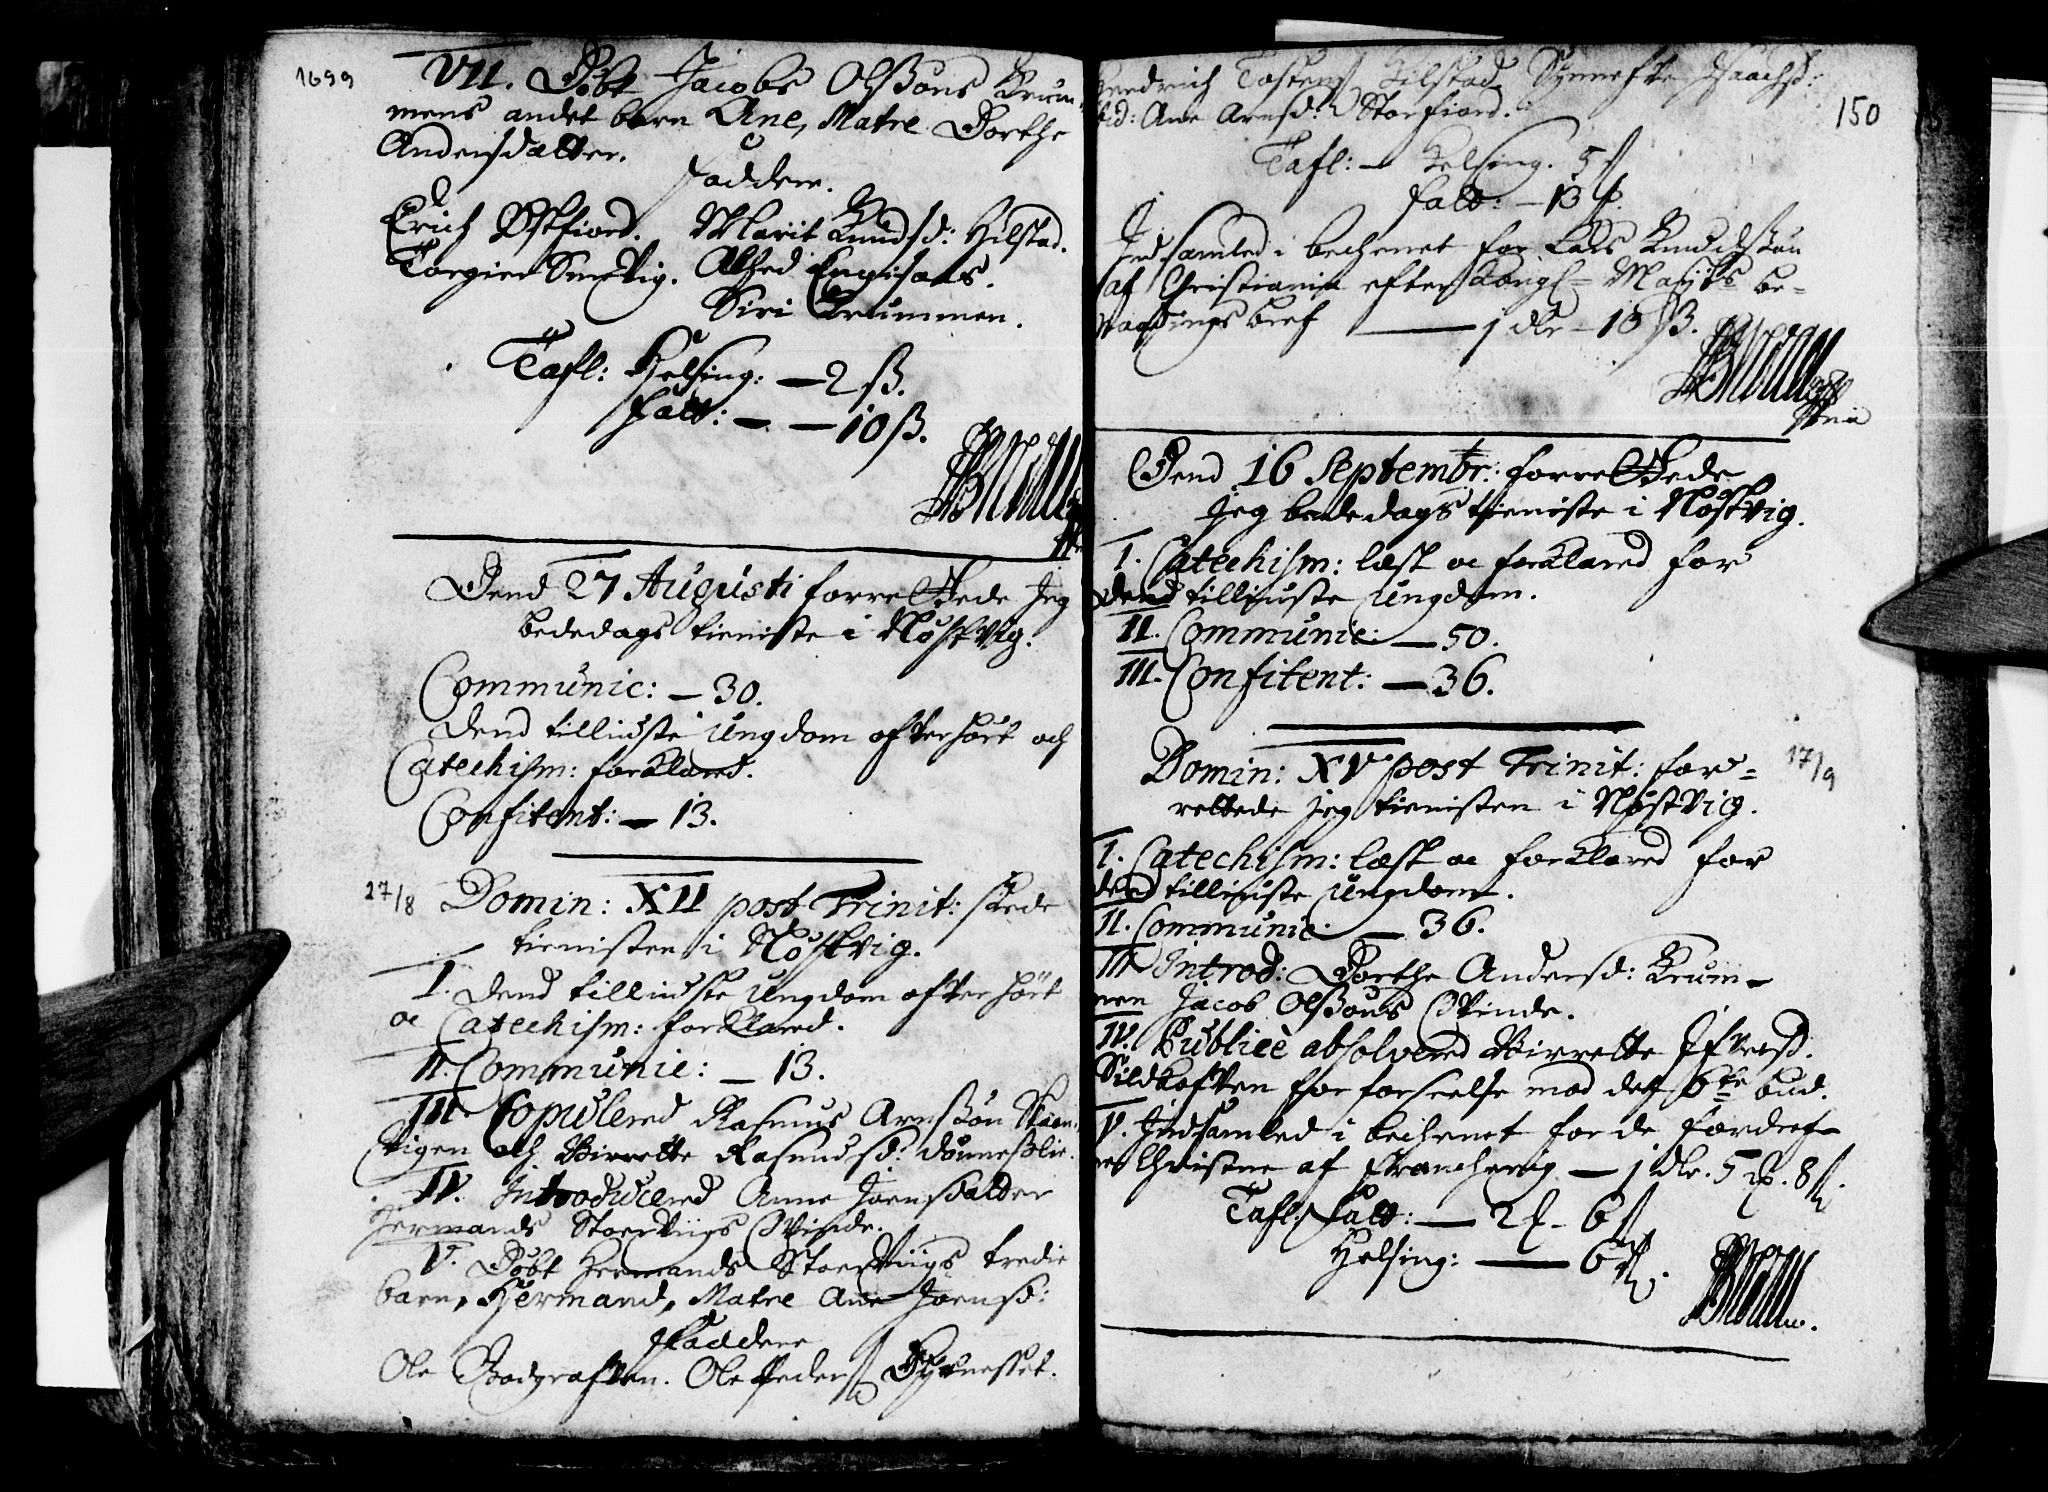 1699
VII. Døbt Jacobs Olßøns Krum-
mens andet barn Ane, Matre Dorthe
Andersdatter.
Fadder.
Erich Østfiord. Marit Knudsd: Hilstad.
Torgier Smevig. Alhed
Siri Krummen.
Tafl: Helsing: — 2 ß.
Fatt: — — 10 ß.
Dend 27 Augusti forrettede Jeg
bededags tieniste i Nøstvig.
Communic: — 30.
Dend tilliudste Ungdom ofverhørt och
Catechism: forklared.
Confitent: — 13.
27/8 Domin: XII post Trinit: skede
tienisten i Nøstvig.
I. Dend tilliudste Ungdom ofverhørt
oc Catechism: forklared.
II. Communic: — 13.
III. Copulered Rasmus Arnßøn
vigen och Birrette Rasmusd:
IV. Introducered Anne Joensdatter
Hermands Storviigs Qvinde.
V. Døbt Hermands Storviigs tredie
barn, Hermand, Matre Ane Joensd:
Faddere
Ole Ole Peders
150
Hendrich Tostens Hilstad. Synnefve Isaachsd:
ibid: Ane Arnsd: Storfiord.
Tafl: — Helsing. 5 ß
Fatt: — 13 ß.
Indsamled i bechenet for Lads Knudsøn
af Christiania efter Kongl= Mayts be-
vaagnings bref — 1 dlr — 16 ß.
Dend 16 Septembr: forrettede
Jeg bededags tieniste i Nøstvig.
I. Catechism: læst oc forklared for
dend tilliuste Ungdom.
II. Communic: — 50.
III. Confitent: — 36.
Domin: XV post Trinit: for= 17/9
rettede jeg tienisten i Nøstvig.
I. Catechism: læst oc forklared for
dend tilliuste Ungdom.
II. Communic: — 36.
III. Introd: Dorthe Andersd: Krum-
men Jacob Olßøns Qvinde.
IV. Publicè absolvered Birrette Ifversd.
Sildkoften for forseelse mod det 6te bud.
V. Indsamled i bechenet for de fordref-
ne Christne af Franckerig — 1 dlr. 5 8 ß.
Tafl: Fatt: — 2 — 6 ß
Helsing: — 6 ß.